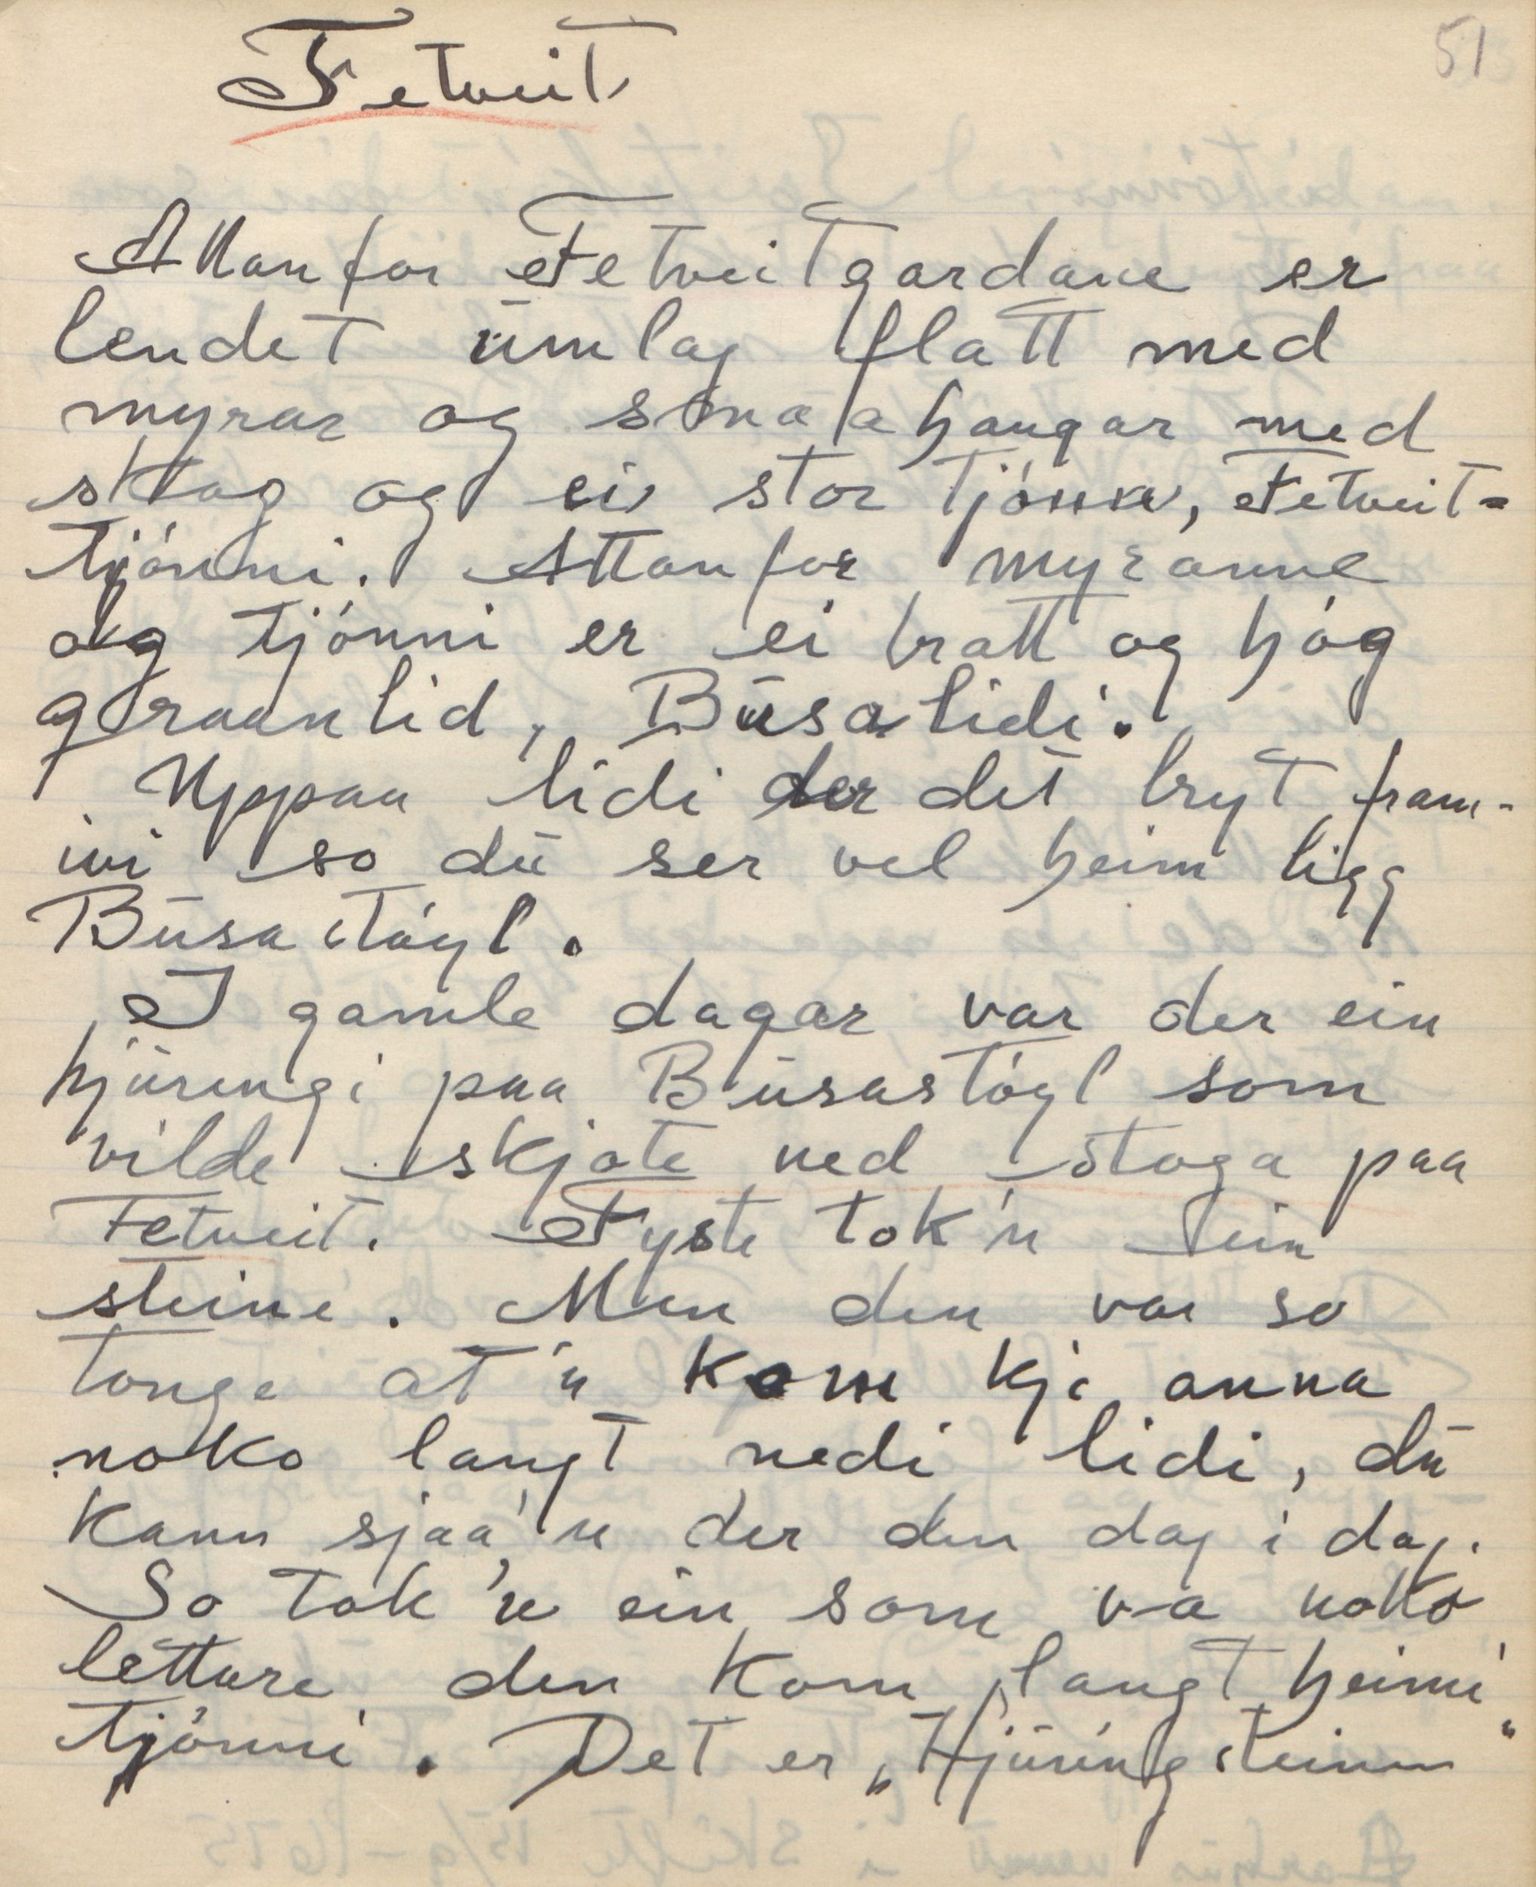 51
Fetveit
Attanfor Fetveitgardane er
lendet umlag flatt med
myrar og smaahaugar med
skog og ei stor tjønn, Fetveit-
tjónni. Attanfor myranne
og tjónni er ei bratt og høg
granlid, Busalidi.
Uppaa lidi der det bryt fram-
ivi so du ser vel heim ligg
Busastøyl.
I gamle dagar var der ein
hjuringi paa Busastøyl som
vilde skjote ned stoga paa
Fetveit. Fyste tok'n ein
steine. Men den var so
tonge at'n kom kje anna
noko langt nedi lidi, du
kann sjaa'n der den dag i dag.
So tok'n ein som va noko
lettare den kom langt heimi
tjónni. Det er „Hjuringsteinen"